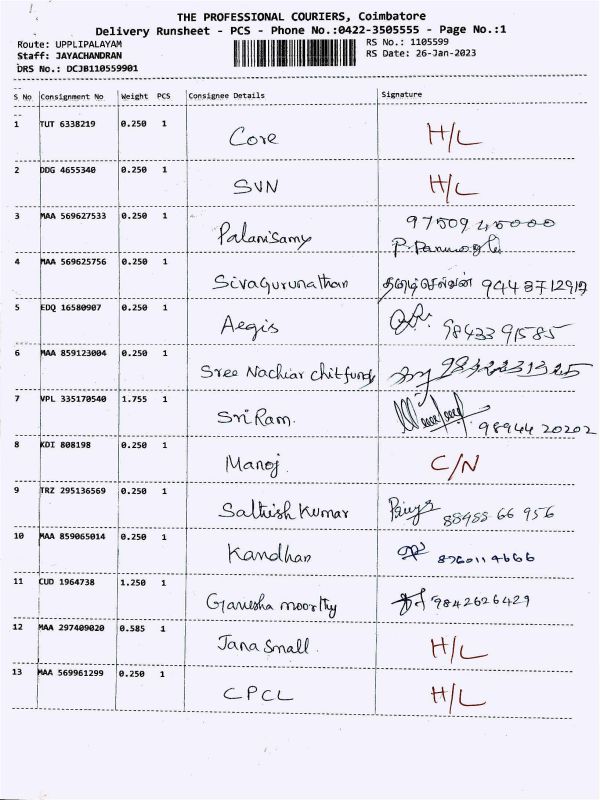 1.
THE PROFESSIONAL COURIERS, Coimbatore
Delivery Runsheet - PCS - Phone No.:0422-3505555 - Page No.:1
Route: UPPLIPALAYAM RS No.: 1105599
Staff: JAYACHANDRAN RS Date: 26-Jan-2023
DRS No.: DCJB110559901
S No Consignment No Weight PCS Consignee Details Signature
1 TUT 6338219 0.250 1 Core H/L
2 DDG 4655340 0.250 1 SVN H/L
3 MAA 569627533 0.250 1 Palanisamy 97509 45000
4 MAA 569625756 0.250 1 Sivagurunathan தமிழ்செல்வன் 9448712912
5 EDQ 16580907 0.250 1 Aegis 98433 91585
6 MAA 859123004 0.250 1 Sree Nachiar chitfunds
7 VPL 335170540 1.755 1 SriRam. 98944 20202
8 KDI 808198 0.250 1 Manoj. C/N
9 TRZ 295136569 0.250 1 Sathish Kumar Priya 88255 66 956
10 MAA 859065014 0.250 1 Kandhan 8760114666
11 CUD 1964738 1.250 1 Ganesha moorthy 9842626429
12 MAA 297409020 0.585 1 Jana Small. H/L
13 MAA 569961299 0.250 1 CPCL H/L